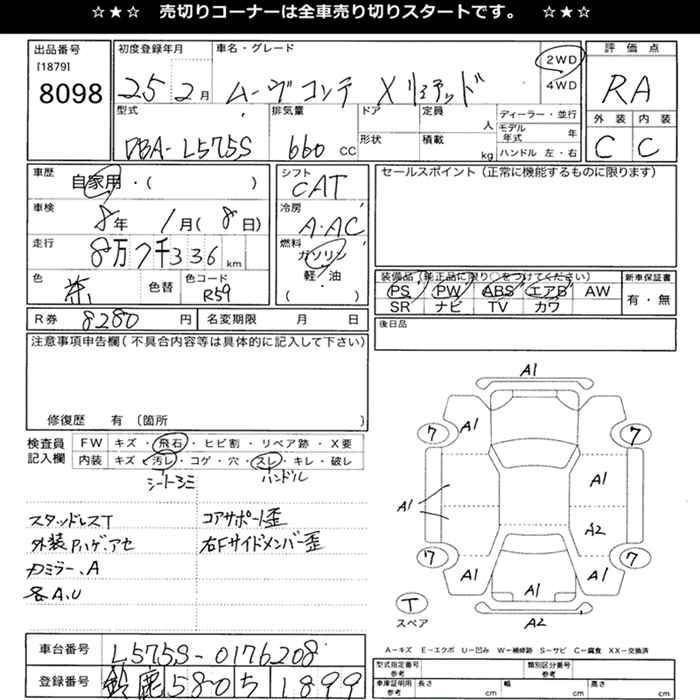 ☆★☆ 売切りコーナーは全車売り切りスタートです。 ☆★☆
出品番号
[1879]
8098
初度登録年月
25 2月
車名・グレード
ムーヴコンテ X リミテッド
2WD
4WD
評価点
RA
外装 内装
C C
型式
DBA-L575S
排気量
660 cc
ドア
形状
定員
人
積載
kg
ディーラー・並行
モデル年式 年
ハンドル 左・右
車歴
自家用・( )
車検
8年 1月(8日)
走行
8万7千336 km
色
茶
色替
色コード
R59
シフト
CAT
冷房
A・AC
燃料
ガソリン
軽・油
( )
セールスポイント(正常に機能するものに限ります)
装備品(純正品に限り○をつけてください)
PS PW ABS エアB AW
SR ナビ TV カワ
新車保証書
有・無
後日品
R券 8280 円
名変期限 月 日
注意事項申告欄(不具合内容等は具体的に記入して下さい)
修復歴 有〔箇所 〕
検査員
記入欄
FW キズ・飛石・ヒビ割・リペア跡・X要
内装 キズ・汚レ・コゲ・穴・スレ・キレ・破レ
シートシミ ハンドル
スタッドレスT コアサポート歪
外装Pハゲ、アセ 右Fサイドメンバー歪
カミラー、A
各A,U
A1
A1
7 7
A1
A1
A2
7 7
A1 A1 A1
T
スペア
A2
車台番号 L575S-0176208
登録番号 鈴鹿 580 ち 1899
A-キズ E-エクボ U-凹み W-補修跡 S-サビ C-腐食 XX-交換済
型式指定番号 参考
類別区分番号 参考
車庫証明用 参考 長さ cm 幅 cm 高さ cm